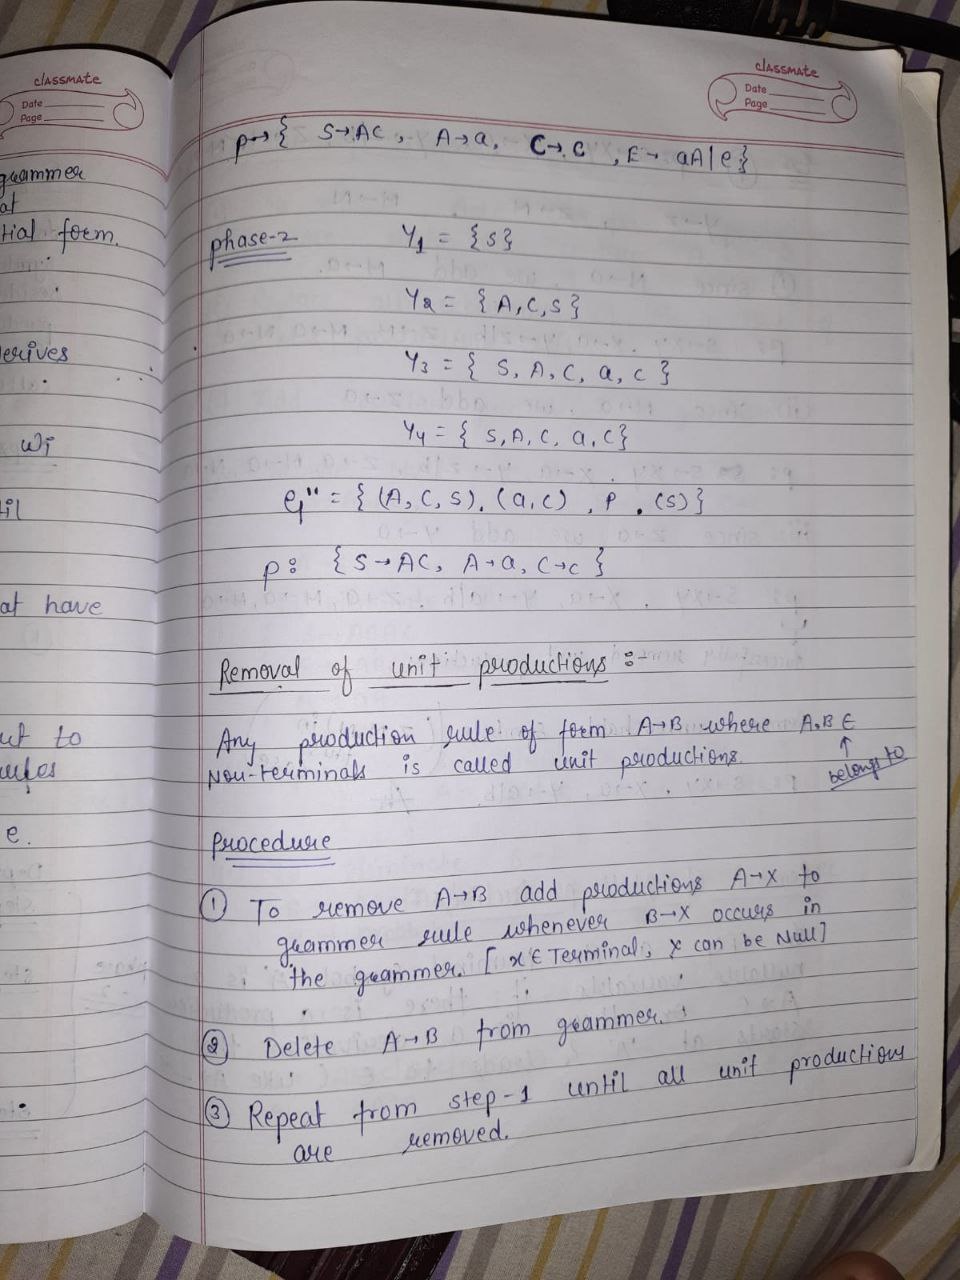 classmate
Date
Page
grammer
at
tial form.
derives
wi
til
at have
ut to
e.
classmate
Date
Page
P→{ S→AC, A→a, C→c, E→ aA|e}
phase-2 Y1 = {S}
Y2 = { A, C, S}
Y3 = { S, A, C, a, c }
Y4 = { S, A, C, a, c}
G" = { (A, C, S), (a, c), P, (S)}
P: { S→AC, A→a, C→c }
Removal of unit productions :-
Any production rule of form A→B where A,B ∈
Non-terminals is called unit productions.
↑
belongs to
Procedure
① To remove A→B add productions A→X to
grammer rule whenever B→X occurs in
the grammer. [ x ∈ Terminal, x can be Null]
② Delete A→B from grammer.
③ Repeat from step-1 until all unit productions
are removed.